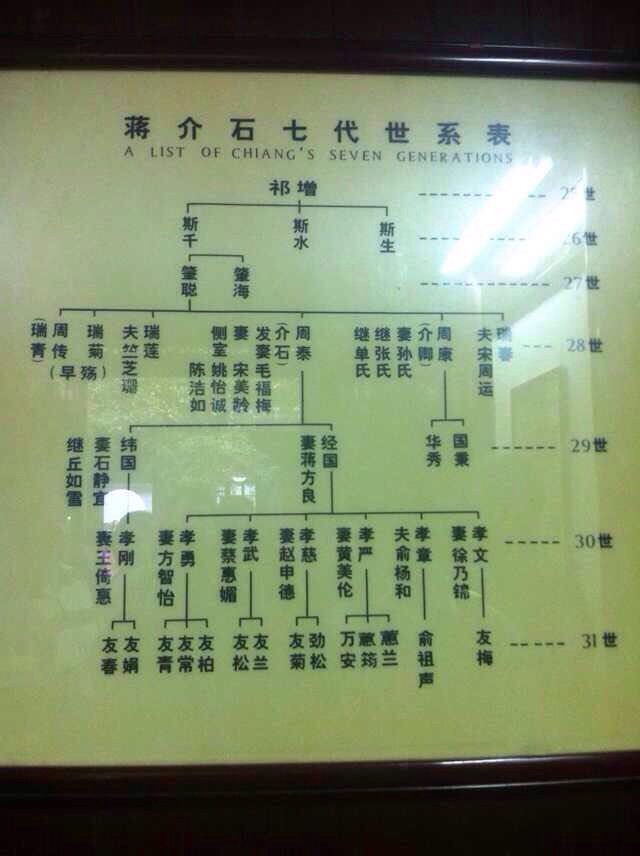 蒋介石七代世系表
A LIST OF CHIANG'S SEVEN GENERATIONS
祁增
25世
斯千
斯水
斯生
26世
肇聪
肇海
27世
(瑞青)
周传
瑞菊
(早殇)
夫竺芝珊
瑞莲
侧室 姚怡诚
陈洁如
妻 宋美龄
发妻毛福梅
(介石)
周泰
继单氏
继张氏
妻孙氏
(介卿)
周康
夫宋周运
瑞春
28世
继丘如雪
妻石静宜
纬国
妻蒋方良
经国
华秀
国秉
29世
妻王倚惠
孝刚
妻方智怡
孝勇
妻蔡惠媚
孝武
妻赵申德
孝慈
妻黄美伦
孝严
夫俞杨和
孝章
妻徐乃锦
孝文
30世
友春
友娟
友青
友常
友柏
友松
友兰
友菊
劲松
万安
蕙筠
蕙兰
俞祖声
友梅
31世